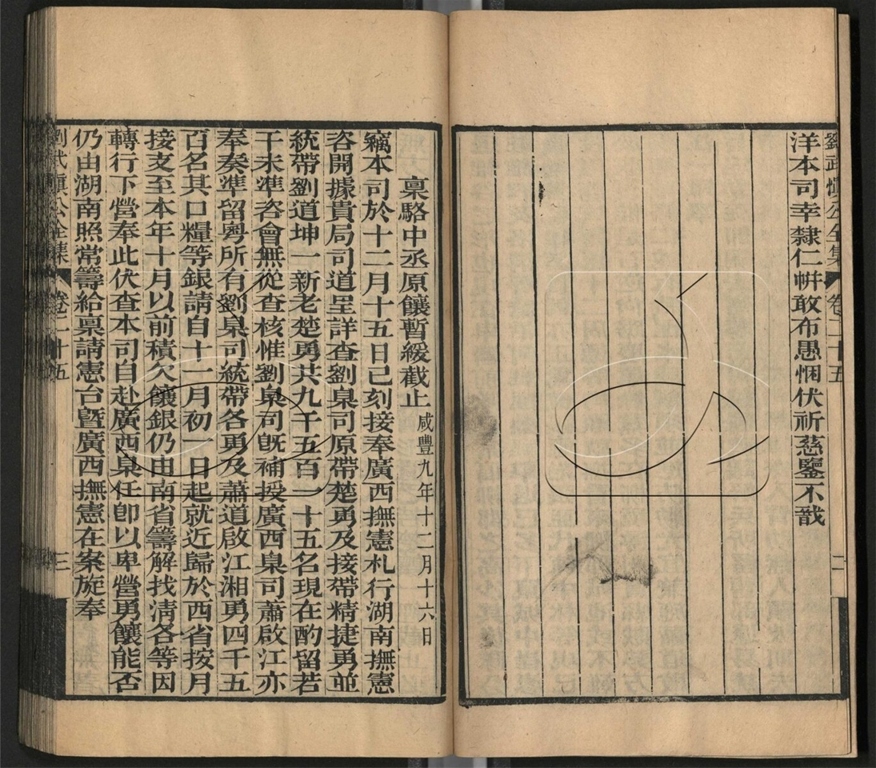 劉武慎公全集 卷二十五 二
洋本司幸隸仁帡敢布愚悃伏祈慈鑒不戩
稟駱中丞原饟暫緩截止 咸豐九年十二月十六日
竊本司於十二月十五日己刻接奉廣西撫憲札行湖南撫憲
咨開據貴局司道呈詳查劉臬司原帶楚勇及接帶精捷勇並
統帶劉道坤一新老楚勇共九千五百一十五名現在酌留若
干未準咨會無從查核惟劉臬司旣補授廣西臬司蕭啟江亦
奉奏準留粤所有劉臬司統帶各勇及蕭道啟江湘勇四千五
百名其口糧等銀請自十一月初一日起就近歸於西省按月
接支至本年十月以前積欠饟銀仍由南省籌解找淸各等因
轉行下營奉此伏查本司自赴廣西臬任卽以卑營勇饟能否
仍由湖南照常籌給稟請憲台曁廣西撫憲在案旋奉
劉武愼公全集 卷二十五 三